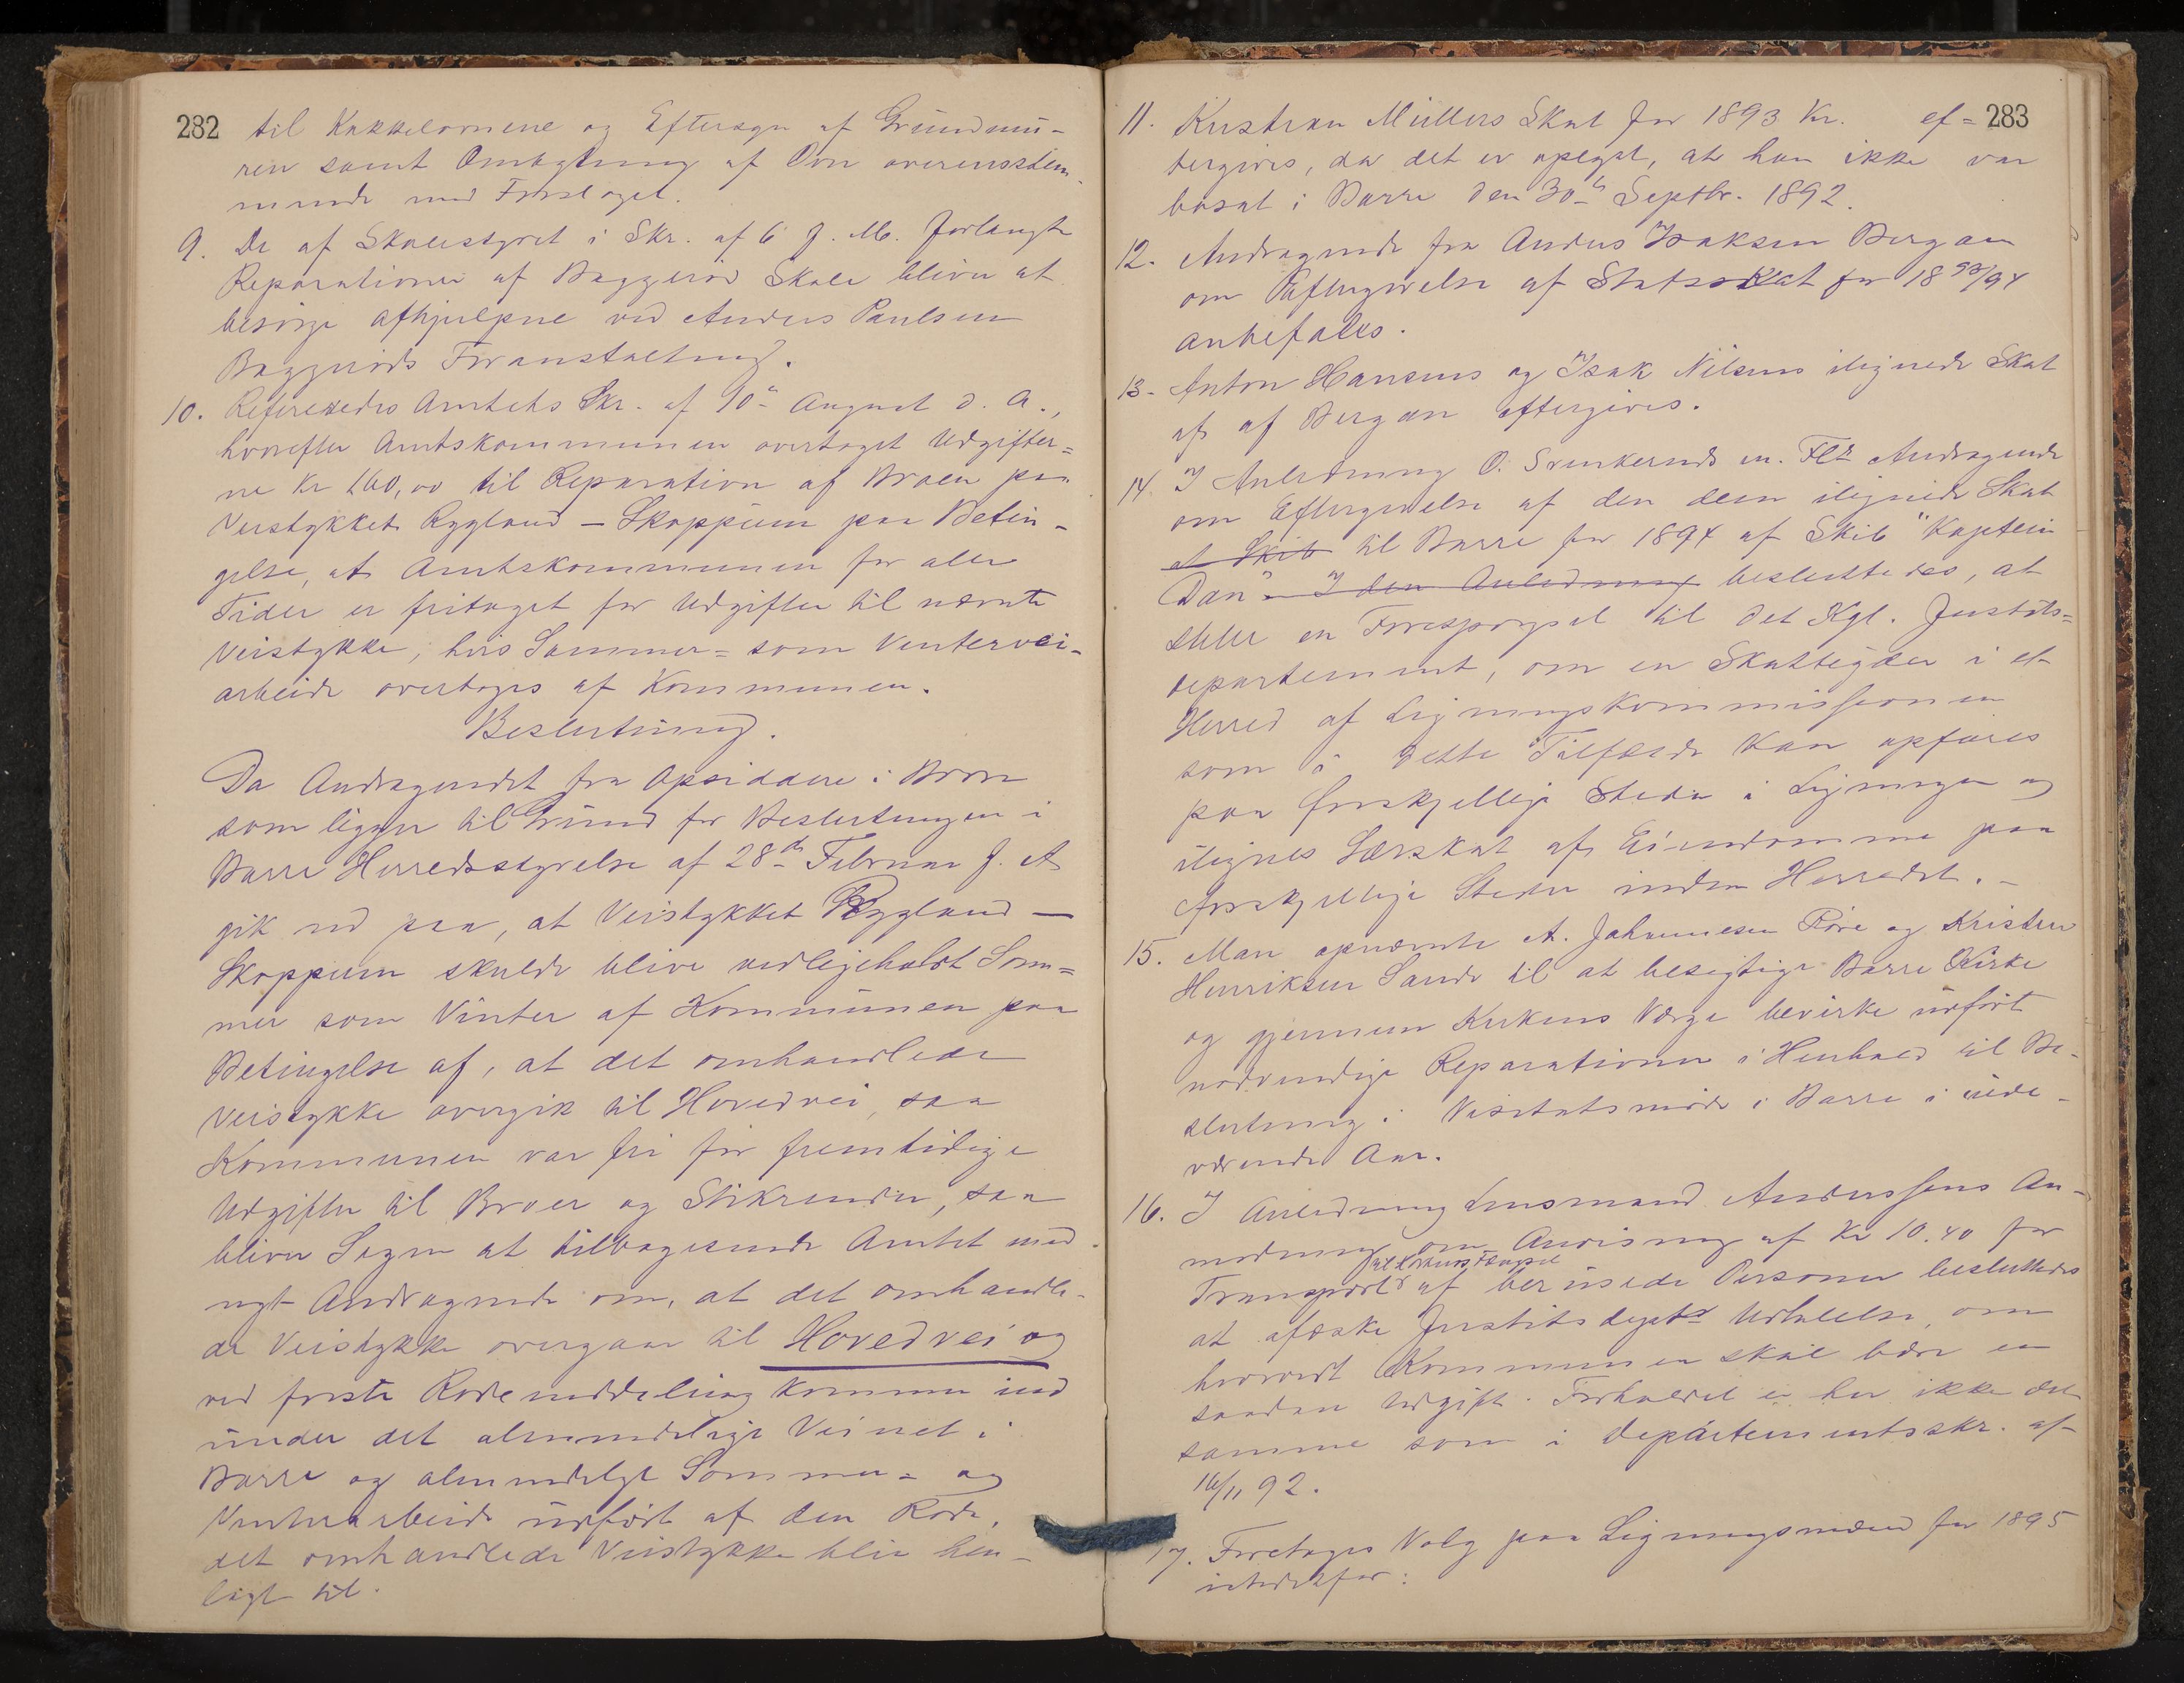 282
til Kakkelovnene og Eftersyn af Grundmu-
ren samt Ombygning af Ovn overensstem-
mende med Forslaget.
9. De af Skolestyret i Skr. af 6 f. M. forlangte
Reparationer af Baggerød Skole bliver at
besørge afhjulpne ved Anders Paulsen
Baggerøds Foranstaltning.
10. Refereredes Amtets Skr. af 10de August d. A.,
hvorefter Amtskommunen overtaget Udgifter=
ne Kr 160,00 til Reparation af Broen paa
Veistykket Rygland - Skoppum paa Betin-
gelse, at Amtskommunen for alle
Tider er fritaget for Udgifter til nævnte
Veistykke, hvis Sommer= som Vintervei-
arbeide overtages af Kommunen.
Beslutning.
Da Andragendet fra Opsiddere i Borre
som ligger til Grund for Beslutningen i
Borre Herredsstyrelse af 28de Februar f. A
gik ud paa, at Veistykket Rygland —
Skoppum skulde blive vedligeholdt Som=
mer som Vinter af Kommunen paa
Betingelse af, at det omhandlede
Veistykke overgik til Hovedvei, saa
Kommunen var fri for fremtidige
Udgifter til Broer og Stikrender, saa
bliver Sagen at tilbagesende Amtet med
nyt Andragende om, at det omhandle-
de Veistykke overgaar til Hovedvei og
ved første Rodeinddeling kommer ind
under det almindelige Veinet i
Borre og almindelige Sommer= og
Vinterarbeide udført af den Rode,
det omhandlede Veistykke blir hen-
lagt til.
11. Kristian Müllers Skat for 1893 Kr. ef= 283
tergives, da det er oplyst, at han ikke var
bosat i Borre den 30te Septbr. 1892.
12. Andragende fra Anders Isaksen Bergan
om Eftergivelse af Statsskat for 1893/94
anbefales.
13. Anton Hansens og Isak Nilsens ilignede Skat
af Bergan eftergives.
14. I Anledning O. m. Flr Andragende
om Eftergivelse af den dem ilignede Skat
et Skib til Borre for 1894 af Skib "Kaptein
Dan" I den Anledning besluttedes, at
stille en Forespørgsel til det Kgl. Justits=
departement, om en Skatteyder i et
Herred af Ligningskommissionen
som i dette Tilfælde kan opføres
paa forskjellige Steder i Ligningen og
ilignes Særskat af Eiendomme paa
forskjellige Steder inden Herredet. -
15. Man opnævnte A. Johannesen Røre og Kristen
Henriksen Sande til at besigtige Borre Kirke
og gjennem Kirkens Værge bevirke udført
nødvendige Reparationer i Henhold til Be-
slutning i Visitatsmøde i Borre i inde-
værende Aar.
16. I Anledning Lensmand Anderssens An-
modning om Anvisning af Kr 10.40 for
Transport af berusede Personer besluttedes
at afæske Justitsdepts Udtalelse, om
hvorvidt Kommunen skal bære en
saadan Udgift. Forholdet er her ikke det
samme som i Departementsskr. af
16/11 92.
17. Foretoges Valg paa Ligningsmænd for 1895
istedetfor: